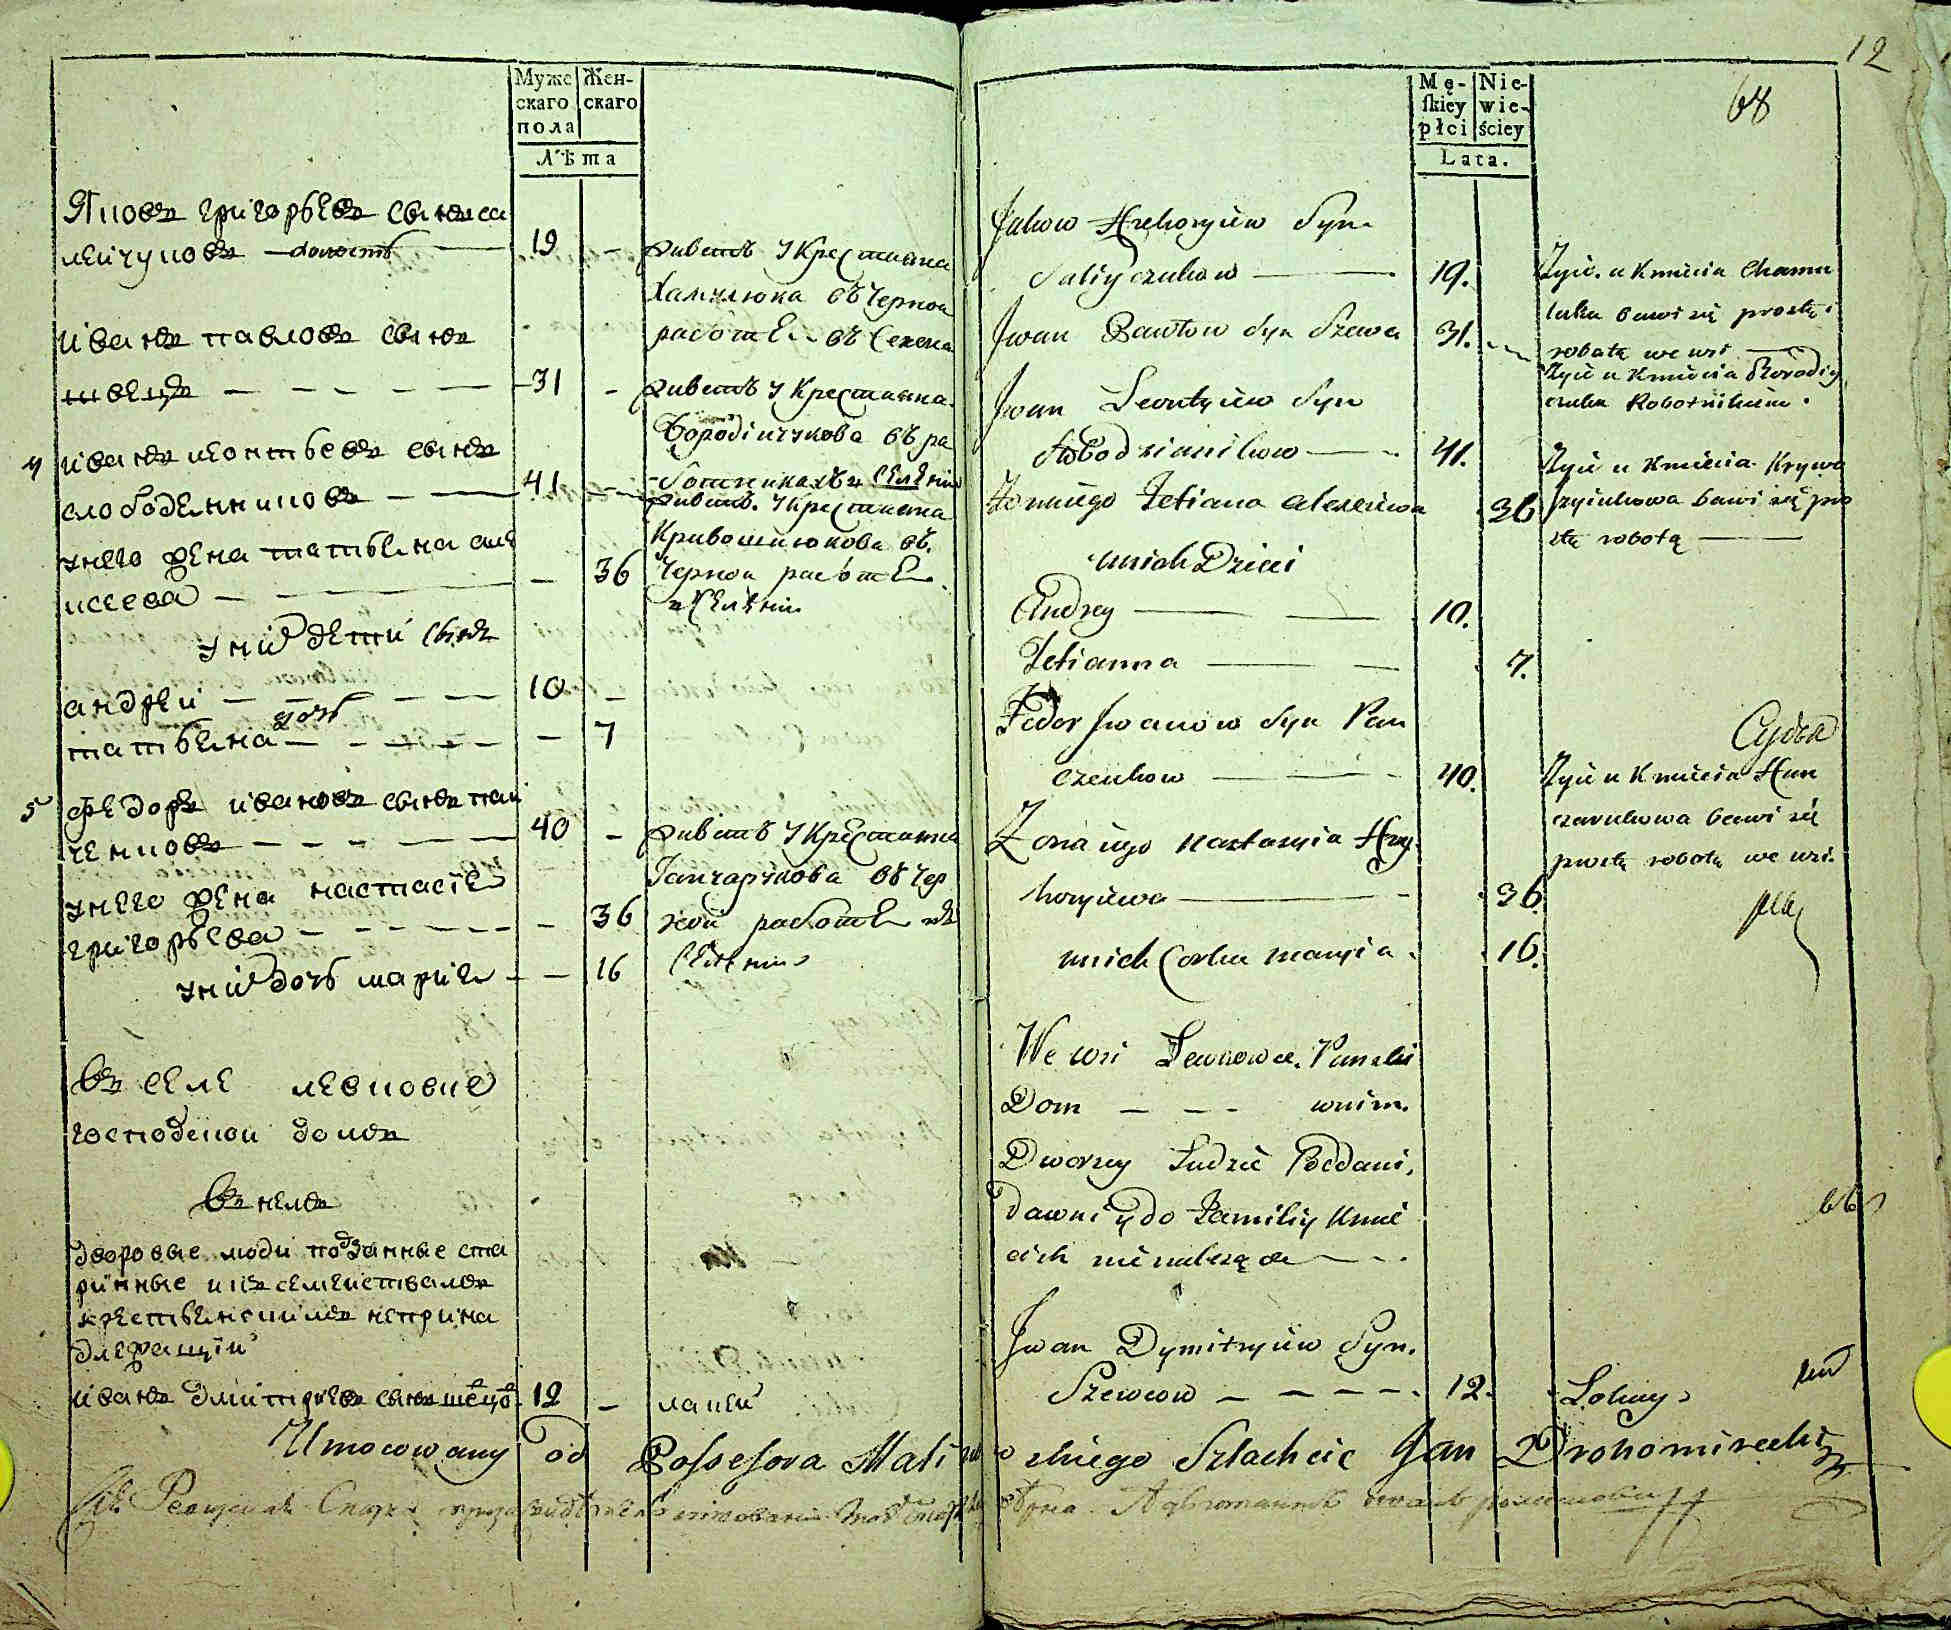 Муже
скаго
пола
Жен-
скаго
Лѣта
Яковъ григорьевъ сынъ са
лейчуковъ — холостъ — 19 —
живетъ у крестьянина
Хамулюка въ черной
работе въ селени
иванъ павловъ сынъ
швецъ — 31 —
живетъ у крестьянина
Бородийчукова въ ра
ботникахъ в селении
4 иванъ леонтьевъ сынъ
слободенниковъ — 41 —
живетъ у крестьянина
Кривошиюкова въ
черной работе
в селении
у него жена татьяна але
ксеева — 36
у них дети сынъ
андрей — 10 —
татьяна дочь — 7
5 федоръ ивановъ сынъ пан
ченковъ — 40 —
живетъ у крестьянина
Ганчарукова въ чер
ной работе въ
селении
у него жена настасия
григорьева — 36
у них дочь мария — 16
въ селе левковце
господской домъ
въ немъ
дворовые люди подданные ста
ринные и къ семействамъ
крестьянскимъ неприна
длежащии
иванъ дмитриевъ сынъ шевцовъ 12 — лакей
12
68
Mę-
skiey
płci
Nie-
wie-
ściey
Lata.
Jakow Hrehoryiew Syn
Saliyczukow — 19.
Żyie u Kmiecia Chamu
luka bawi się prostą
robotą we wsi
Iwan Pawłow Syn Szewc 31.
Żyie u Kmiecia Borodiy
czuka Robotnikiem.
Iwan Leontyiew Syn
Słobodzianikow — 41.
Żyie u Kmiecia Krywo
szyiukowa bawi się pro
stą robotą —
Żona iego Tetiana Alexeiewa 36
u nich Dzieci
Andrey — 10.
Tetianna — 7.
Fedor Iwanow Syn Pan
czenkow — 40.
Żyie u Kmiecia Han
czarukowa bawi się
prostą robotą we wsi.
Żona iego Nastasyia Hry
horyiewa — 36.
u nich Corka Maryia. 16.
We wsi Lewkowce. Panski
Dom — — - w nim.
Dworscy Ludzie Poddani,
dawni y do Familiy Kmie
cich nie należące —
Iwan Dymitryiew Syn.
Szewcow — — — — 12. Lokay
Судья
Umocowany od Possesora Malinowskiego Szlachcic Jan Drohomirecki